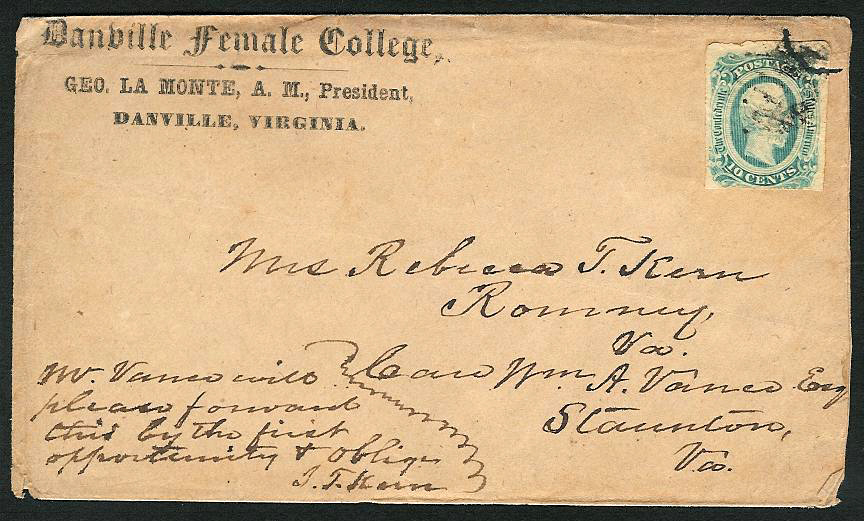 Danville Female College,
GEO. LA MONTE, A. M., President,
DANVILLE, VIRGINIA.
POSTAGE
The Confederate
States of America
10 CENTS
Mrs Rebecca T. Kern
Romney,
Va.
Care Wm. A. Vance Esq
Staunton,
Va.
Mr. Vance will
please forward
this by the first
opportunity & oblige
J. T. Kern